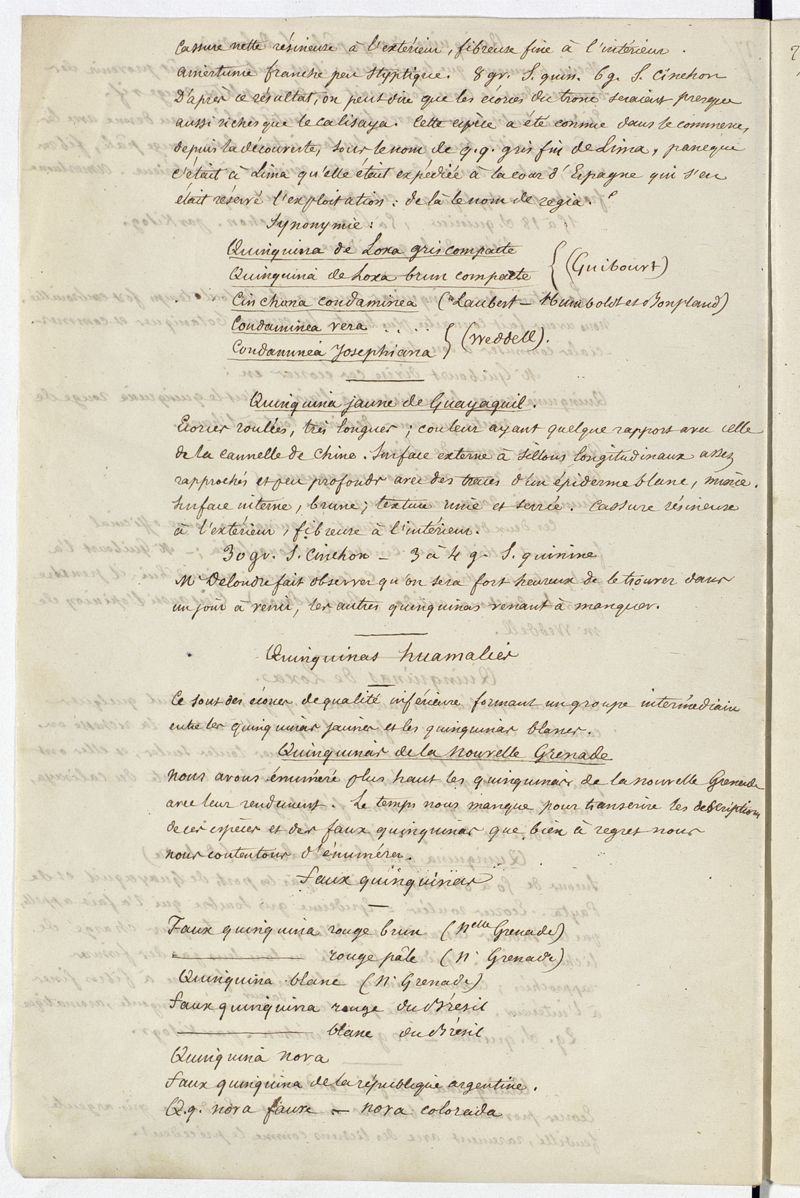 Cassure nette résineuse à l'extérieur, fibreuse fine à l'intérieur.
amertume franche peu styptique. 8 gr. S. quin. 6 g. S. Cinchon
D'après ce résultat, on peut dire que les écorces du tronc seraient presque
aussi riches que le calisaya. Cette espèce a été connue dans le commerce,
depuis la découverte, sous le nom de q.q. gris fin de Lima, parce que
c'était à Lima qu'elle était expédiée à la cour d'Espagne qui s'en
était réservé l'exploitation : de là le nom de regia.
Synonymie :
Quinquina de Loxa gris compacte
Quinquina de Loxa brun compacte } (Guibourt)
Cinchona condaminea (Laubert – Humboldt et Bonpland)
Condaminea vera . . . .
Condaminea Josephiana } (Weddell).
Quinquina jaune de Guayaquil.
Ecorces roulées, très longues ; couleur ayant quelque rapport avec celle
de la cannelle de Chine. Surface externe à sillons longitudinaux assez
rapprochés et peu profonds avec des traces d'un épiderme blanc, mince.
Surface interne, brune ; texture unie et serrée. Cassure résineuse
à l'extérieur, fibreuse à l'intérieur.
30 gr. S. Cinchon – 3 à 4 g. S. quinine
Mr Delondre fait observer qu'on sera fort heureux de le trouver dans
un jour à venir, les autres quinquinas venant à manquer.
Quinquinas huamaliès
Ce sont des écorces de qualité inférieure formant un groupe intermédiaire
entre les quinquinas jaunes et les quinquinas blancs.
Quinquinas de la Nouvelle Grenade
Nous avons énuméré plus haut les quinquinas de la nouvelle Grenade
avec leur rendement. Le temps nous manque pour transcrire les descriptions
de ces espèces et des faux quinquinas que bien à regret nous
nous contentons d'énumérer.
Faux quinquinas
Faux quinquina rouge brun (Nelle Grenade)
——— rouge pâle (N. Grenade)
Quinquina blanc (N. Grenade)
Faux quinquina rouge du Brésil
——— blanc du Brésil
Quinquina nova
Faux quinquina de la république argentine.
Q.q. nova faux – nova colorada